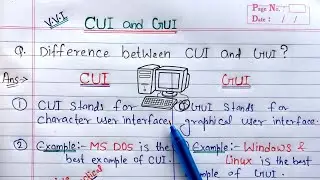 V.V.I
CUI and GUI
Page No.
Date: / /
Q. Difference between CUI and GUI?
Ans→ CUI GUI
① CUI stands for
character user interface.
① GUI stands for
graphical user interface.
② Example:- MS DOS is the
best example of CUI.
② Example:- Windows &
Linux is the best
example of GUI.